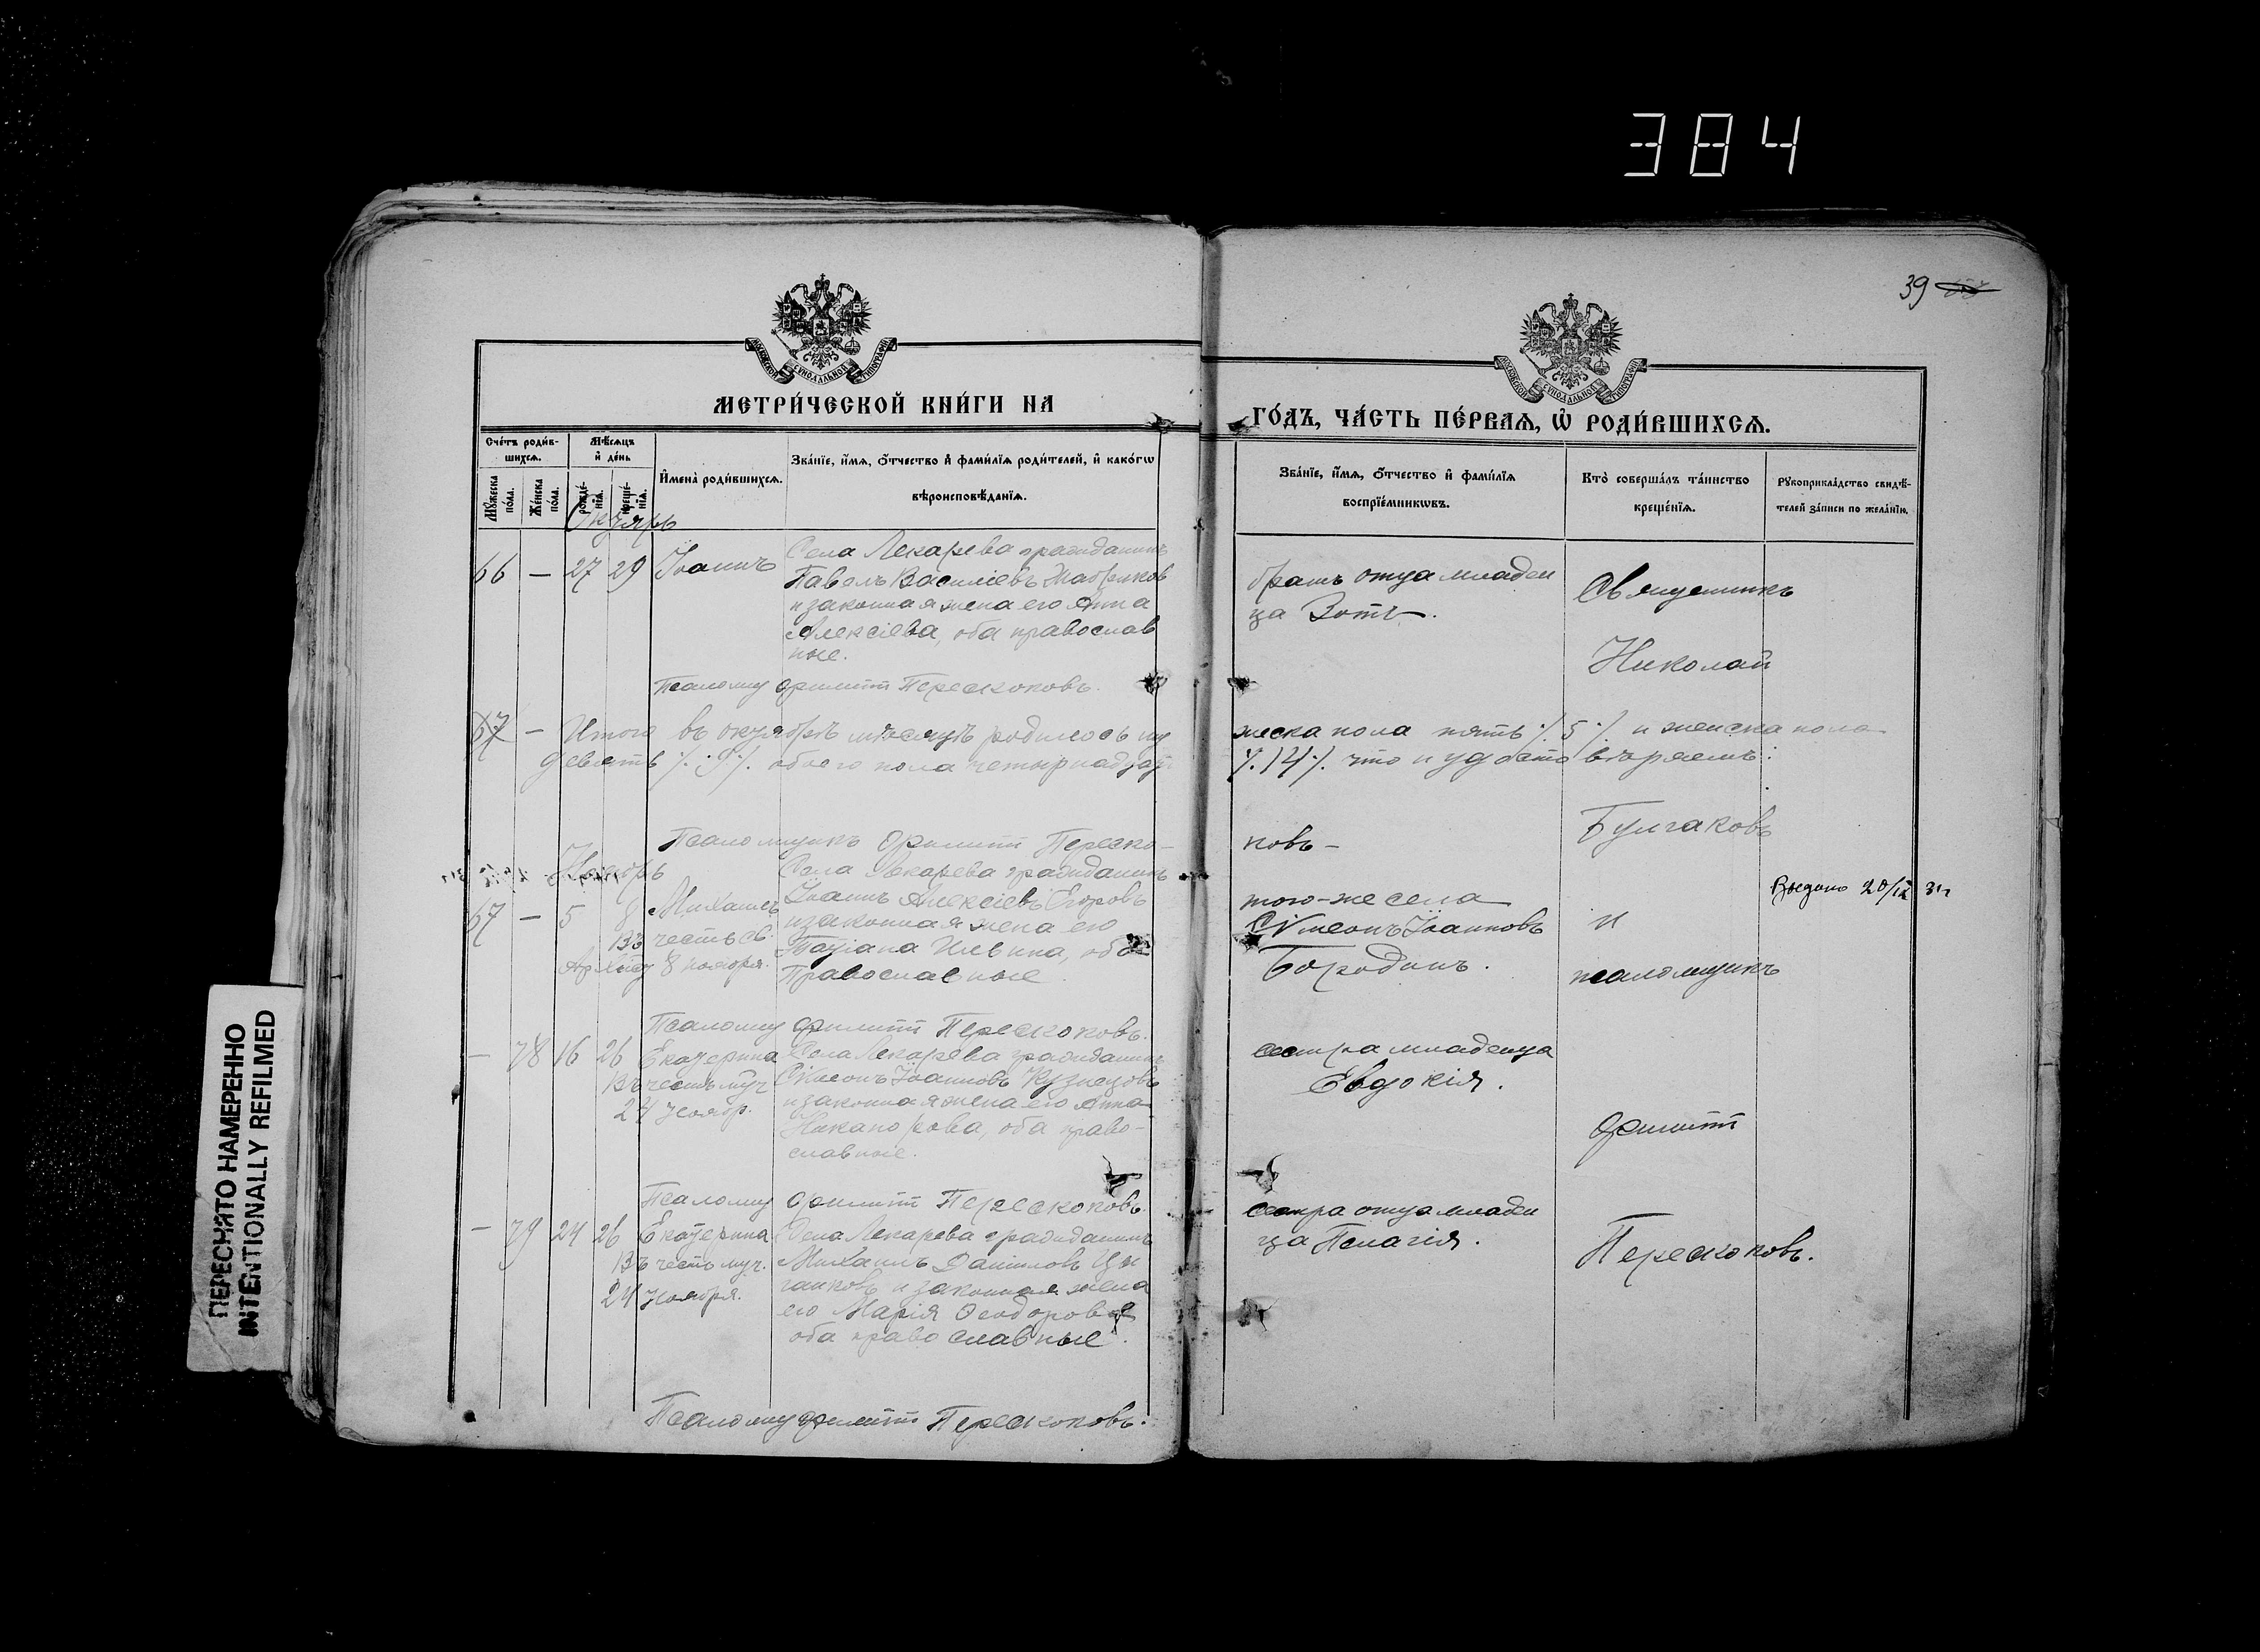 384
39
МОСКОВСКОЙ СѴНОДАЛЬНОЙ ТИПОГРАФІИ
МОСКОВСКОЙ СѴНОДАЛЬНОЙ ТИПОГРАФІИ
МЕТРИ́ЧЕСКОЙ КНИ́ГИ НА
ГО́ДЪ, ЧА́СТЬ ПЕ́РВАЯ, Ѡ҆ РОДИ́ВШИХСЯ.
Сче́тъ роди́в-
шихся.
Мѣ́сяцъ
и҆ де́нь
Мꙋ́жеска
по́ла.
Же́нска
по́ла.
рожде́-
нїя.
креще́-
нїя.
И҆мена̀ роди́вшихся.
Зва́нїе, и҆́мя, ѻ҆́тчество и҆ фами́лїя роди́телей, и҆ како́гѡ
вѣроисповѣ́данїя.
Зва́нїе, и҆́мя, ѻ҆́тчество и҆ фами́лїя
воспрїе́мникѡвъ.
Кто̀ соверша́лъ та́инство
креще́нїя.
Рꙋкоприкла́дство свидѣ́-
телей за́писи по жела́нїю.
Октябрь
66 — 27 29 Іоаннъ
Села Лекарева гражданинъ
Павелъ Василіевъ
и законная жена его Анна
Алексіева, оба православ
ные.
братъ отца младен
ца Зотъ.
Священникъ
Николай
Псаломщ Филиппъ Перескоковъ.
67 — Итого въ октябрѣ мѣсяцѣ родилось му
жеска пола пять ·/.5·/. и женска пола
девять ·/.9·/. обоего пола четырнадцат
·/.14·/. что и удостовѣряемъ:
Булгаковъ
Псаломщикъ Филиппъ Переско-
ковъ –
Ноябрь
67 — 5 8 Михаилъ
Въ честь св.
Арх 8 ноября.
Села Лекарева гражданинъ
Іоаннъ Алексіевъ Егоровъ
и законная жена его
Татіана Ильина, оба
Православные.
того-же села
Сѵмеонъ Іоанновъ
Бородинъ.
и
псаломщикъ
Выдано 20/IX 31 г
Псаломщ Филиппъ Перескоковъ.
— 78 16 26 Екатерина
Въ честь муч
24 ноябр.
Села Лекарева гражданинъ
Сѵмеонъ Іоанновъ Кузнецовъ
и законная жена его Анна
Никанорова, оба право-
славные.
сестра младенца
Евдокія.
Филиппъ
Псаломщ Филиппъ Перескоковъ.
— 79 24 26 Екатерина
Въ честь муч.
24 ноября.
Села Лекарева гражданинъ
Михаилъ Даніиловъ Цы
ганковъ и законная жена
его Марія Ѳеодорова
оба православные.
сестра отца младен
ца Пелагія.
Перескоковъ.
Псаломщ Филиппъ Перескоковъ.
ПЕРЕСНЯТО НАМЕРЕННО
INTENTIONALLY REFILMED